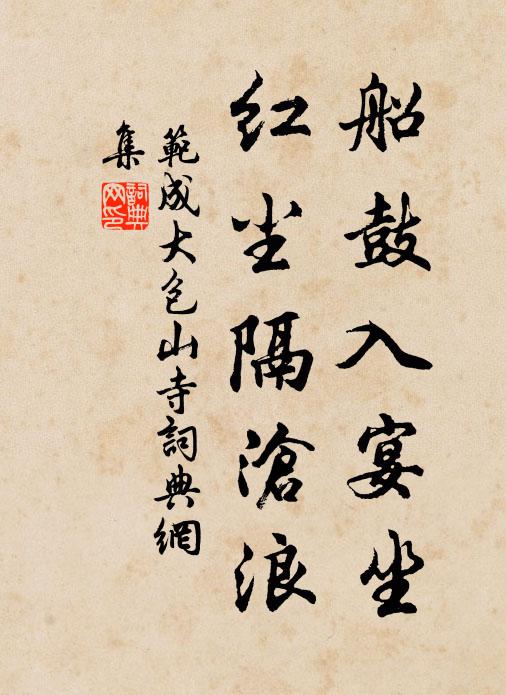 船鼓入宴坐
红尘隔滄浪
範成大包山寺詞典網
集
詞典
网印